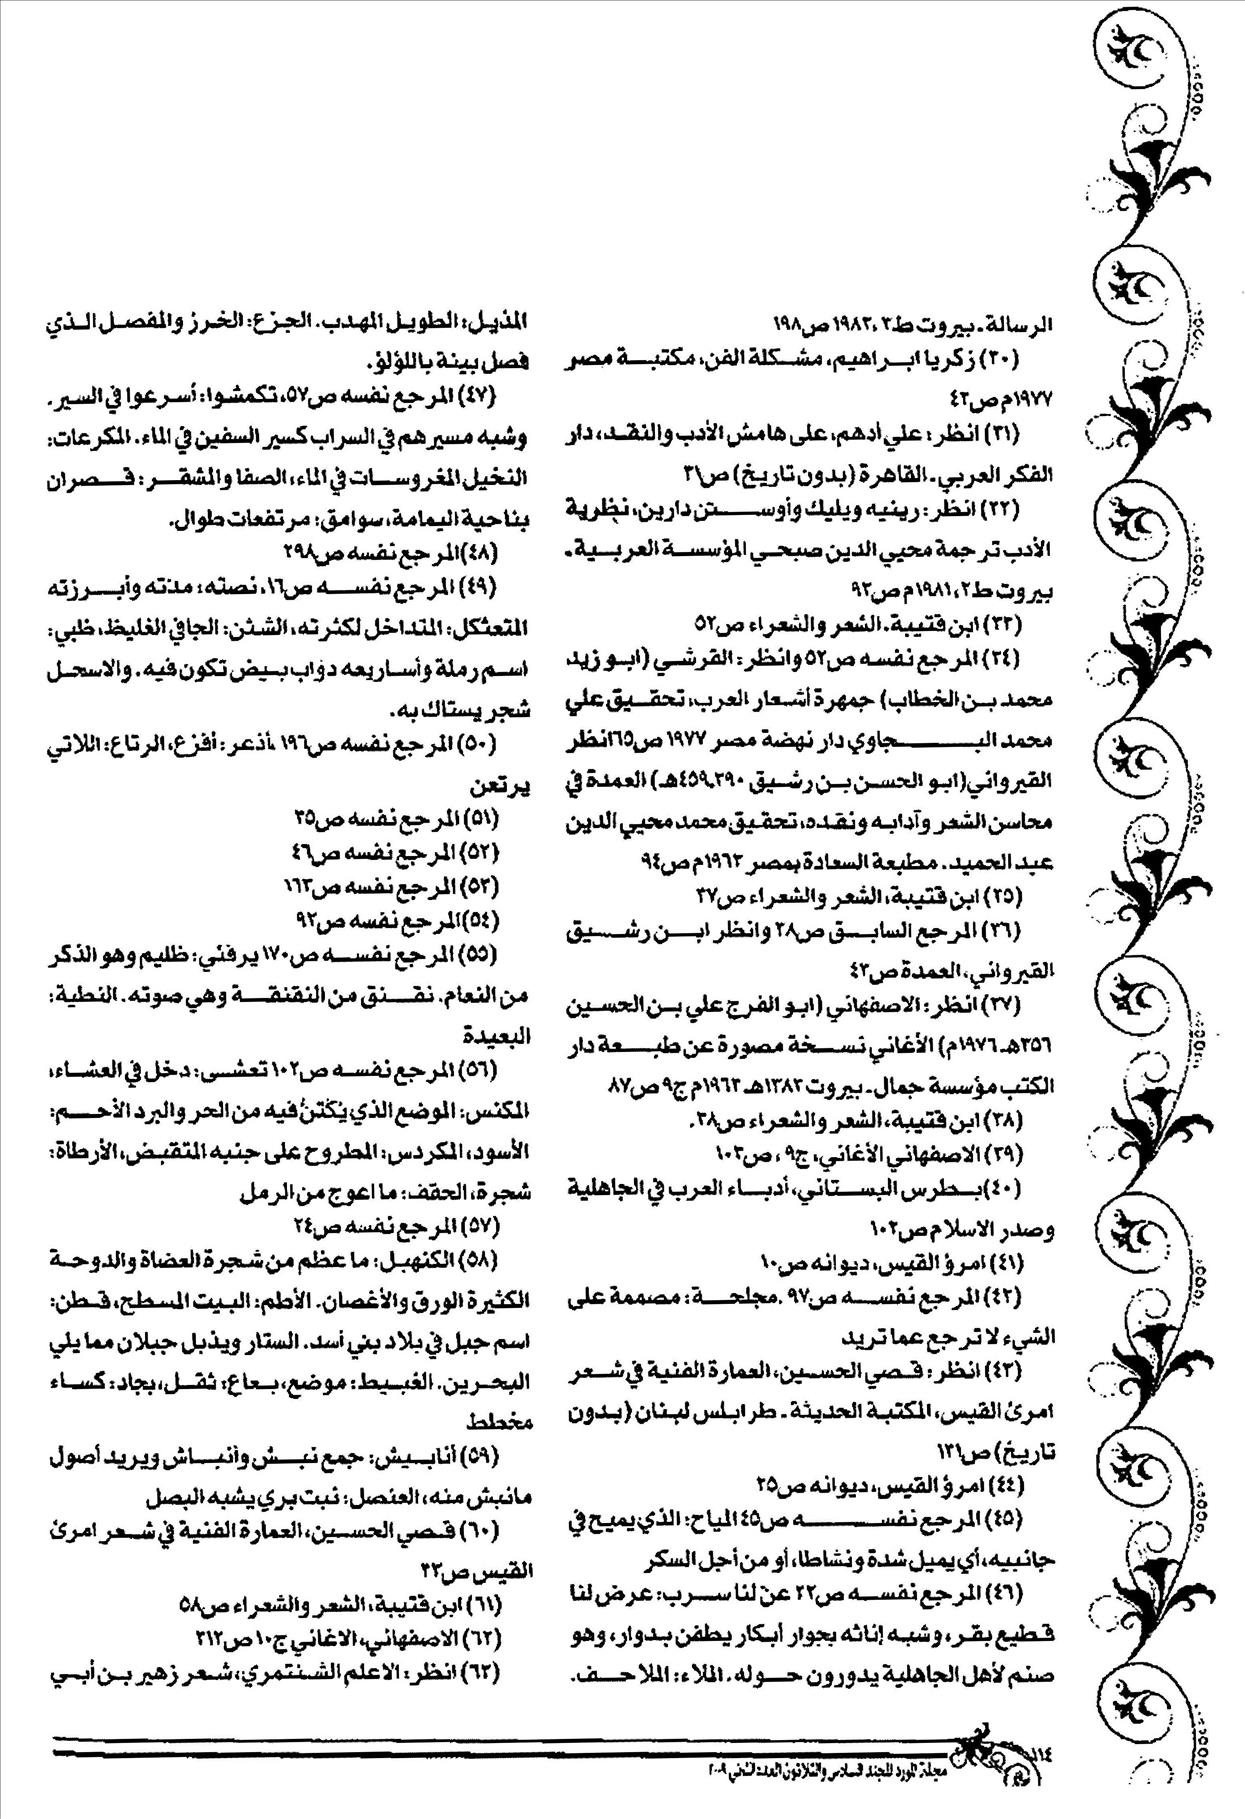 الرسالة ـ بيروت ط٣، ١٩٨٢ ص١٩٨
(٣٠) زكريا ابراهيم، مشكلة الفن، مكتبة مصر
١٩٧٧م ص٤٢
(٣١) انظر: علي أدهم، على هامش الأدب والنقد، دار
الفكر العربي ـ القاهرة (بدون تاريخ) ص٣١
(٣٢) انظر: رينيه ويليك وأوستن دارين، نظرية
الأدب ترجمة محيي الدين صبحي المؤسسة العربية ـ
بيروت ط٢، ١٩٨١م ص٩٢
(٣٣) ابن قتيبة ـ الشعر والشعراء ص٥٢
(٣٤) المرجع نفسه ص٥٢ وانظر: القرشي (ابو زيد
محمد بن الخطاب) جمهرة أشعار العرب، تحقيق علي
محمد البجاوي دار نهضة مصر ١٩٧٧ ص٦٥انظر
القيرواني(ابو الحسن بن رشيق ٣٩٠ـ٤٥٩هـ) العمدة في
محاسن الشعر وآدابه ونقده، تحقيق محمد محيي الدين
عبد الحميد. مطبعة السعادة بمصر ١٩٦٣م ص٩٤
(٣٥) ابن قتيبة، الشعر والشعراء ص٣٧
(٣٦) المرجع السابق ص٢٨ وانظر ابن رشيق
القيرواني، العمدة ص٤٣
(٣٧) انظر: الاصفهاني (ابو الفرج علي بن الحسين
٣٥٦هـ ١٩٧٦م) الأغاني نسخة مصورة عن طبعة دار
الكتب مؤسسة جمال ـ بيروت ١٣٨٣هـ ١٩٦٣م ج٩ ص٨٧
(٣٨) ابن قتيبة، الشعر والشعراء ص٣٨.
(٣٩) الاصفهاني الأغاني، ج٩، ص١٠٣
(٤٠) بطرس البستاني، أدباء العرب في الجاهلية
وصدر الاسلام ص١٠٢
(٤١) امرؤ القيس، ديوانه ص١٠
(٤٢) المرجع نفسه ص٩٧ .مجلحة: مصممة على
الشيء لا ترجع عما تريد
(٤٣) انظر: قصي الحسين، العمارة الفنية في شعر
امرئ القيس، المكتبة الحديثة ـ طرابلس لبنان (بدون
تاريخ) ص١٣١
(٤٤) امرؤ القيس، ديوانه ص٢٥
(٤٥) المرجع نفسه ص٤٥ المياح: الذي يميح في
جانبيه، أي يميل شدة ونشاطا، أو من أجل السكر
(٤٦) المرجع نفسه ص٢٢ عنّ لنا سرب: عرض لنا
قطيع بقر، وشبه إناثه بجوار أبكار يطفن بدوار، وهو
صنم لأهل الجاهلية يدورون حوله. الملاء: الملاحف.
المذيل: الطويل المهدب. الجزع: الخرز والمفصل الذي
فصل بينة باللؤلؤ.
(٤٧) المرجع نفسه ص٥٧، تكمشوا: أسرعوا في السير.
وشبه مسيرهم في السراب كسير السفين في الماء. المكرعات:
النخيل المغروسات في الماء، الصفا والمشقر: قصران
بناحية اليمامة، سوامق: مرتفعات طوال.
(٤٨)المرجع نفسه ص٢٩٨
(٤٩) المرجع نفسه ص١٦، نصته: مدته وأبرزته
المتعثكل: المتداخل لكثرته، الشثن: الجافي الغليظ، ظبي:
اسم رملة وأساريعه دواب بيض تكون فيه. والاسحل
شجر يستاك به.
(٥٠) المرجع نفسه ص١٩٦ ،أذعر: أفزع، الرتاع: اللاتي
يرتعن
(٥١) المرجع نفسه ص٣٥
(٥٢) المرجع نفسه ص٤٦
(٥٣) المرجع نفسه ص١٦٣
(٥٤)المرجع نفسه ص٩٢
(٥٥) المرجع نفسه ص١٧٠ يرفئي: ظليم وهو الذكر
من النعام. نقنق من النقنقة وهي صوته. النطية:
البعيدة
(٥٦) المرجع نفسه ص١٠٢ تعشى: دخل في العشاء،
المكنس: الموضع الذي يُكْتنُ فيه من الحر والبرد الأحم:
الأسود، المكردس: المطروح على جنبه المتقبض، الأرطاة:
شجرة، الحقف: ما اعوج من الرمل
(٥٧) المرجع نفسه ص٢٤
(٥٨) الكنهبل: ما عظم من شجرة العضاة والدوحة
الكثيرة الورق والأغصان. الأطم: البيت المسطح، قطن:
اسم جبل في بلاد بني أسد. الستار ويذبل جبلان مما يلي
البحرين. الغبيط: موضع، بعاع: ثقل، بجاد: كساء
مخطط
(٥٩) أنابيش: جمع نبش وأنباش ويريد أصول
مانبش منه، العنصل: نبت بري يشبه البصل
(٦٠) قصي الحسين، العمارة الفنية في شعر امرئ
القيس ص٣٣
(٦١) ابن قتيبة، الشعر والشعراء ص٥٨
(٦٢) الاصفهاني، الاغاني ج١٠ ص٣١٢
(٦٣) انظر: الاعلم الشنتمري، شعر زهير بن أبي
١١٤
مجلة المورد المجلد السادس والثلاثون العدد الثاني ٢٠٠٩